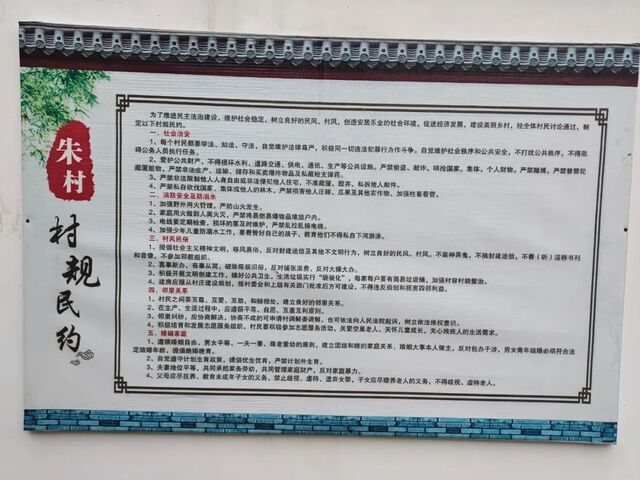 朱村
村规民约
为了推进民主法治建设，维护社会稳定，树立良好的民风、村风，创造安居乐业的社会环境，促进经济发展，建设美丽乡村，经全体村民讨论通过，制
定以下村规民约。
一、社会治安
1、每个村民都要学法、知法、守法，自觉维护法律尊严，积极同一切违法犯罪行为作斗争。自觉维护社会秩序和公共安全，不打扰公共秩序，不得阻
碍公务人员执行任务。
2、爱护公共财产，不得损坏水利、道路交通、供电、通讯、生产等公共设施。严禁偷盗、敲诈、哄抢国家、集体、个人财物。严禁赌博、严禁替罪犯
藏匿赃物，严禁非法生产、运输、储存和买卖爆炸物品及私藏枪支弹药。
3、严禁非法限制他人人身自由或非法侵犯他人住宅，不准藏匿、毁弃、私拆他人邮件。
4、严禁私自砍伐国家、集体或他人的林木，严禁损害他人庄稼、瓜果及其他农作物，加强牲畜看管。
二、消防安全及防溺水
1、加强野外用火管理，严防山火发生。
2、家庭用火做到人离火灭，严禁将易燃易爆物品堆放户内。
3、电线要定期检查，损坏的要及时维护，严禁乱拉乱接电线。
4、加强少年儿童防溺水工作，要看管好自己的孩子，教育他们不得私自下河游泳。
三、村风民俗
1、提倡社会主义精神文明，移风易俗，反对封建迷信及其他不文明行为，树立良好的民风、村风。不装神弄鬼，不搞封建迷信，不看（听）淫秽书刊
和音像，不参加邪教组织。
2、喜事新办，丧事从简，破除陈规旧俗，反对铺张浪费、反对大操大办。
3、积极开展文明创建工作，搞好公共卫生，生活垃圾实行“袋装化”，每家每户要有简易垃圾桶，加强村容村貌整治。
4、建房应服从村庄建设规划，报村委会和上级有关部门批准后方可建设，不得违反规划和损害四邻利益。
四、邻里关系
1、村民之间要互尊、互爱、互助，和睦相处，建立良好的邻里关系。
2、在生产、生活过程中，应遵循平等、自愿、互惠互利原则。
3、邻里纠纷，应协商解决，协商不成的可申请村调解委调解，也可依法向人民法院起诉，树立依法维权意识。
4、积极培育和发展志愿服务组织，村民要积极参加志愿服务活动，关爱空巢老人、关怀儿童成长，关心残疾人的生活需求。
五、婚姻家庭
1、遵循婚姻自由、男女平等、一夫一妻、尊老爱幼的原则，建立团结和睦的家庭关系，婚姻大事本人做主，反对包办干涉，男女青年结婚必须符合法
定结婚年龄，提倡晚婚晚育。
2、自觉遵守计划生育政策，提倡优生优育，严禁计划外生育。
3、夫妻地位平等，共同承担家务劳动，共同管理家庭财产，反对家庭暴力。
4、父母应尽抚养、教育未成年子女的义务，禁止歧视、虐待、遗弃女婴，子女应尽赡养老人的义务，不得歧视、虐待老人。